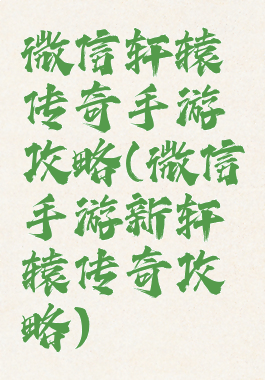 微信轩辕
传奇手游
攻略(微信
手游新轩
辕传奇攻
略)